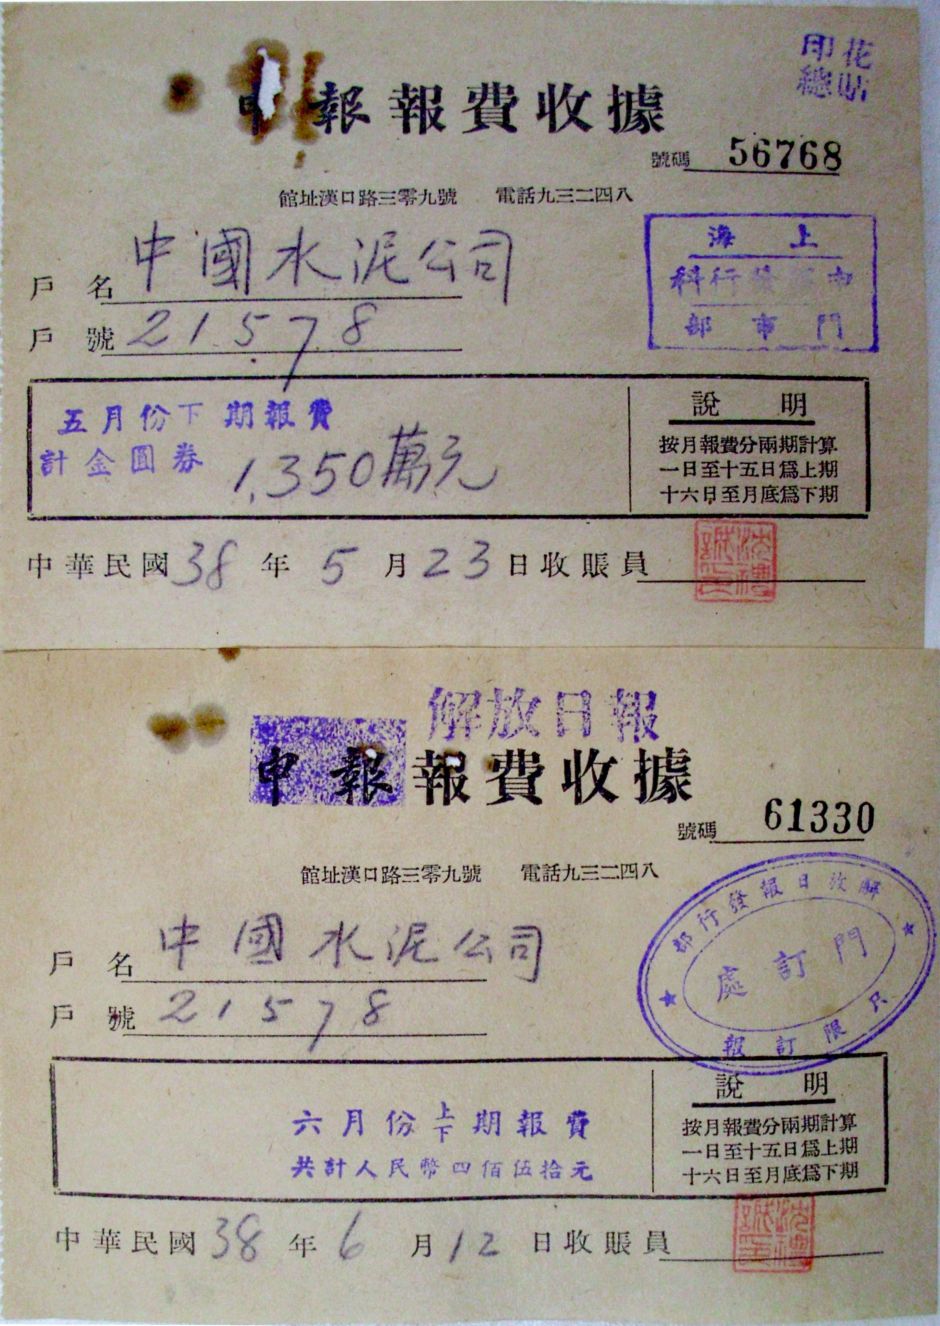 印花
總貼
申報報費收據
號碼 56768
館址漢口路三零九號 電話九三二四八
戶名 中國水泥公司
戶號 21578
上海
申報發行科
門市部
五月份下期報費
計金圓券 1,350萬元
說明
按月報費分兩期計算
一日至十五日爲上期
十六日至月底爲下期
中華民國38年5月23日收賬員
沈禮
解放日報
申報報費收據
號碼 61330
館址漢口路三零九號 電話九三二四八
解放日報發行部
門訂處
只限訂報
戶名 中國水泥公司
戶號 21578
六月份上下期報費
共計人民幣四佰伍拾元
說明
按月報費分兩期計算
一日至十五日爲上期
十六日至月底爲下期
中華民國38年6月12日收賬員
沈禮